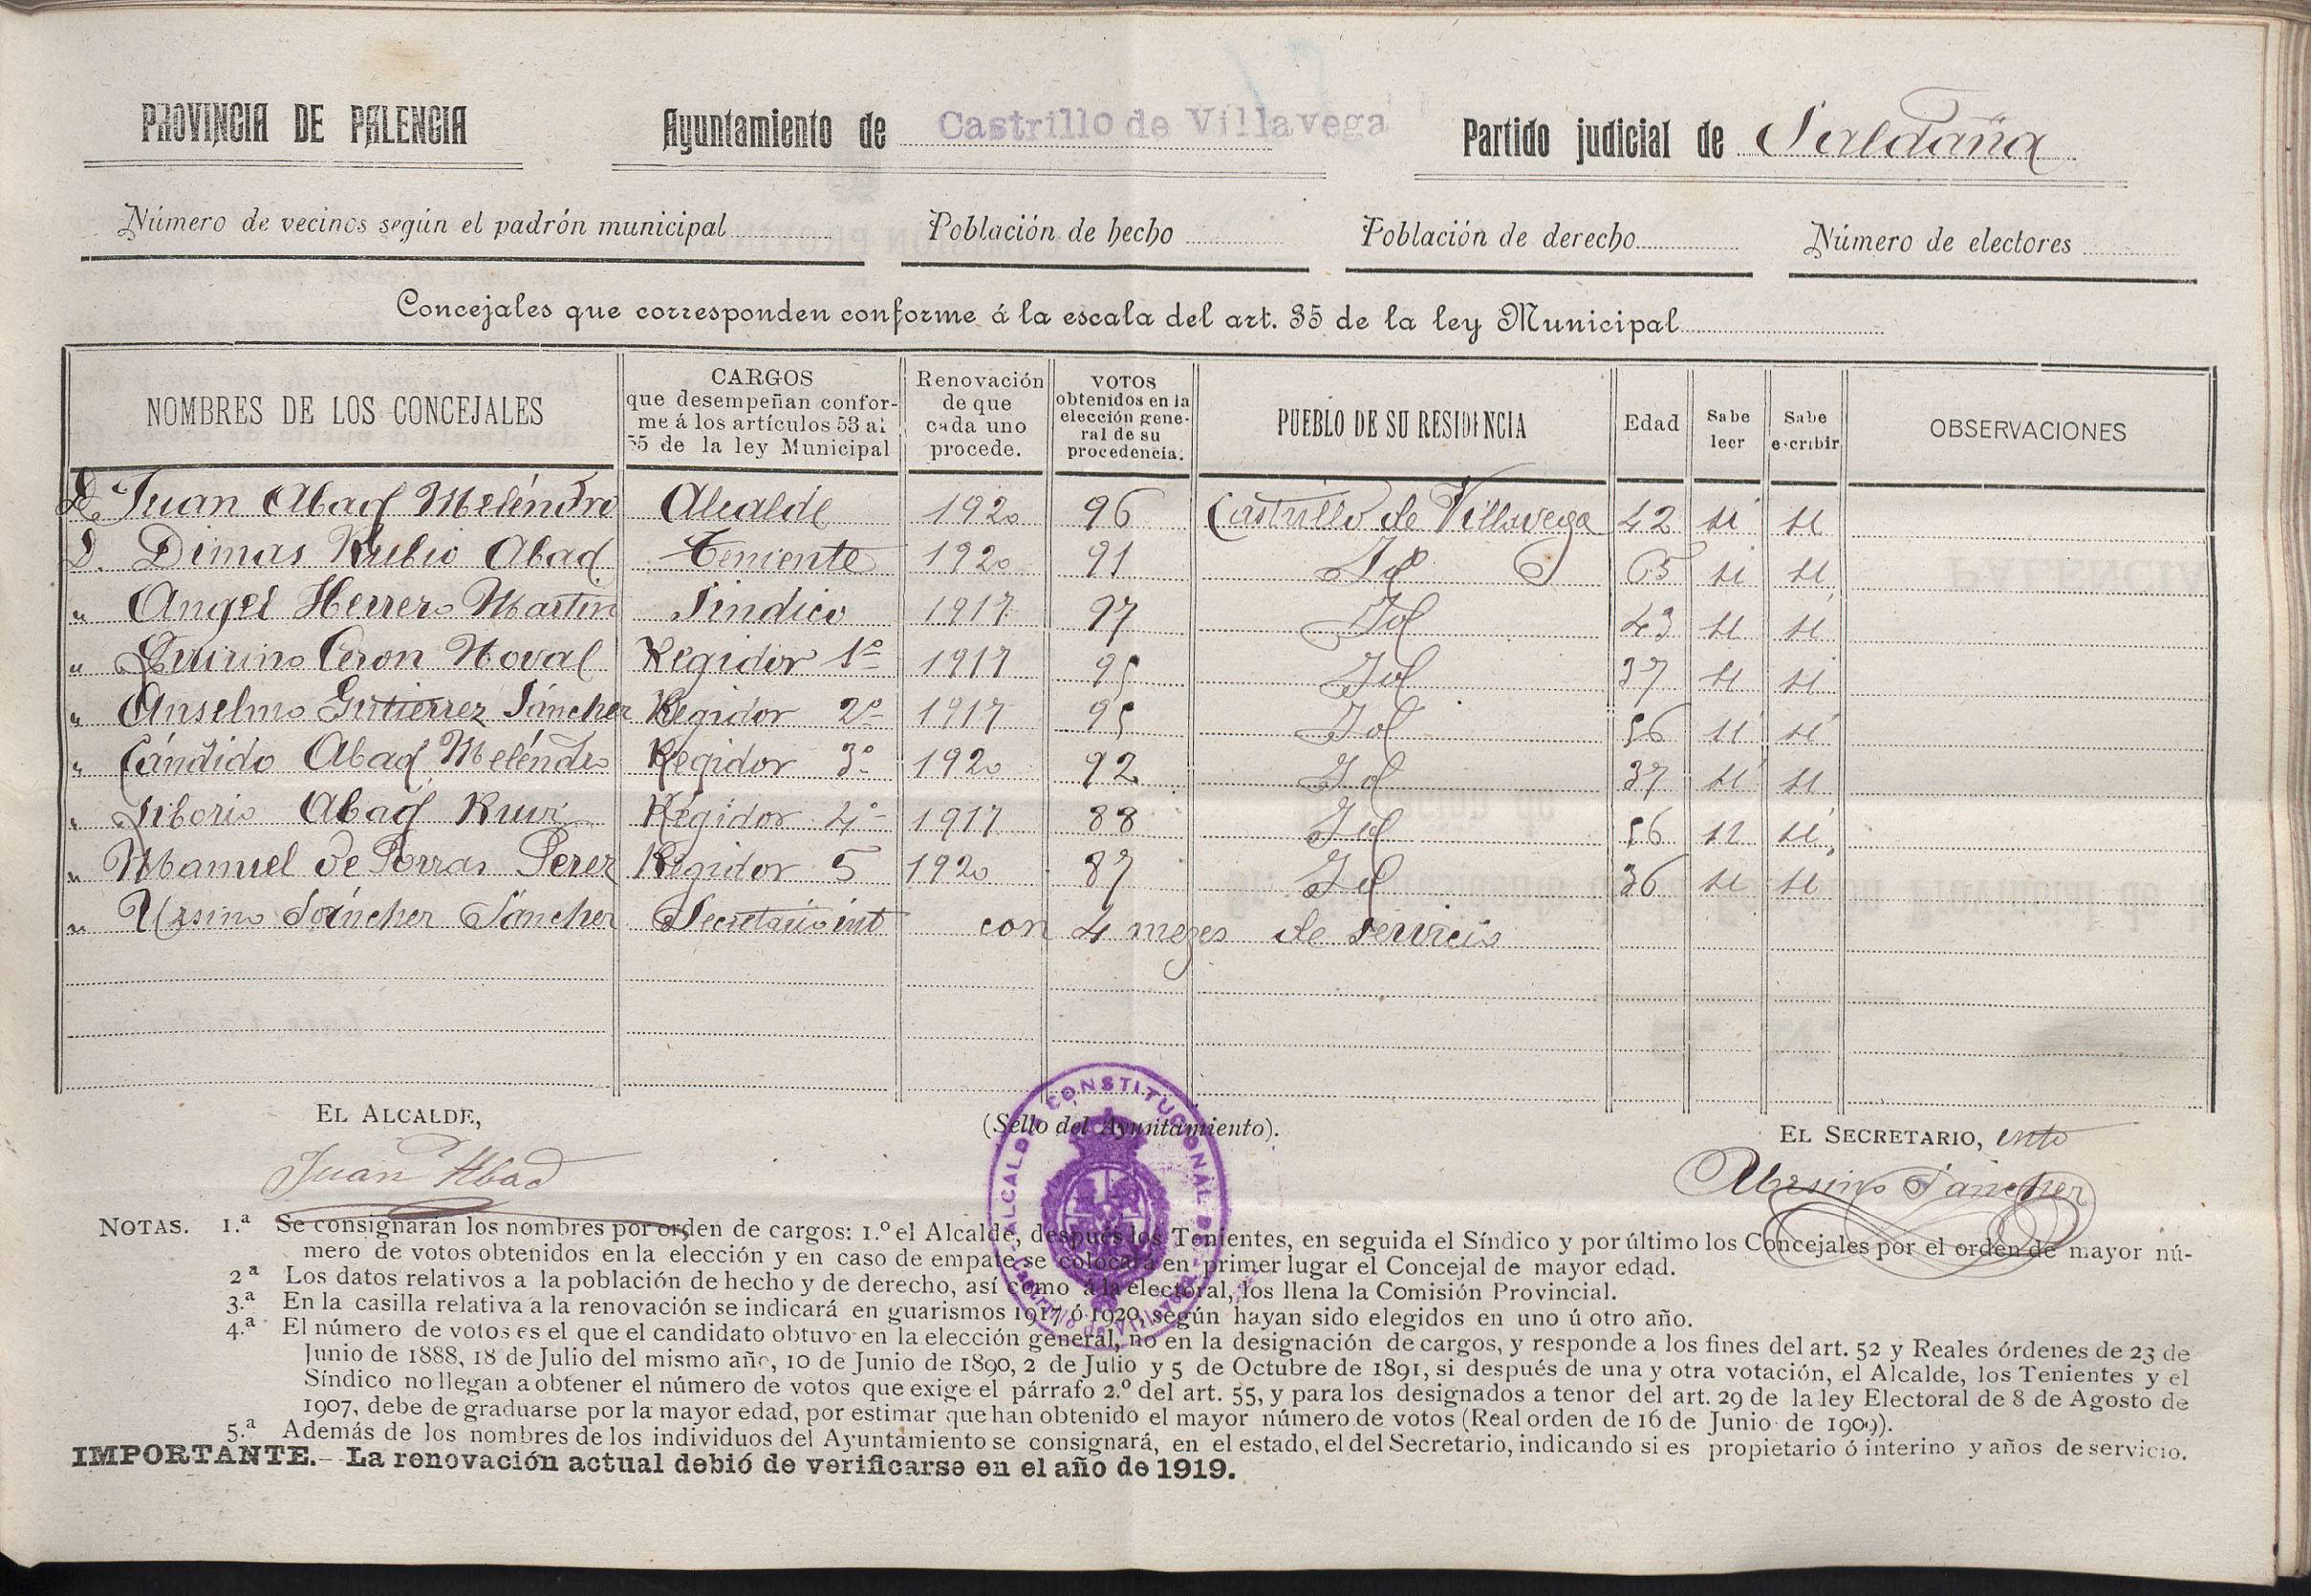 PROVINCIA DE PALENCIA Ayuntamiento de Castrillo de Villavega Partido judicial de Saldaña
Número de vecinos según el padrón municipal Población de hecho Población de derecho Número de electores
Concejales que corresponden conforme á la escala del art. 35 de la ley Municipal
NOMBRES DE LOS CONCEJALES
CARGOS
que desempeñan confor-
me á los artículos 53 al
55 de la ley Municipal
Renovación
de que
cada uno
procede.
VOTOS
obtenidos en la
elección gene-
ral de su
procedencia.
PUEBLO DE SU RESIDENCIA
Edad
Sabe
leer
Sabe
escribir
OBSERVACIONES
D. Juan Abad Meléndro Alcalde 1920 96 Castrillo de Villavega 42 si si
D. Dimas Rubio Abad Teniente 1920 91 Id 65 si si
" Angel Herrero Martin Sindico 1917 97 Id 43 si si
" Quirino Ceron Noval Regidor 1º 1917 95 Id 37 si si
" Anselmo Gutierrez Sáncher Regidor 2º 1917 95 Id 56 si si
" Cándido Abad Meléndro Regidor 3º 1920 92 Id 37 si si
" Liborio Abad Ruiz Regidor 4º 1917 88 Id 56 si si
" Manuel de Porras Perez Regidor 5 1920 87 Id 36 si si
" Ursino Sáncher Sáncher Secretario int con 4 meses de servicio
EL ALCALDE,
(Sello del Ayuntamiento).
EL SECRETARIO, into
Juan Abad
Ursino Sáncher
ALCALDÍA CONSTITUCIONAL DE
Castrillo de Villavega
NOTAS. 1.ª Se consignarán los nombres por orden de cargos: 1.º el Alcalde, después los Tenientes, en seguida el Síndico y por último los Concejales por el orden de mayor nú-
mero de votos obtenidos en la elección y en caso de empate se colocará en primer lugar el Concejal de mayor edad.
2ª Los datos relativos a la población de hecho y de derecho, así como á la electoral, los llena la Comisión Provincial.
3.ª En la casilla relativa a la renovación se indicará en guarismos 1917 ó 1920, según hayan sido elegidos en uno ú otro año.
4.ª El número de votos es el que el candidato obtuvo en la elección general, no en la designación de cargos, y responde a los fines del art. 52 y Reales órdenes de 23 de
Junio de 1888, 18 de Julio del mismo año, 10 de Junio de 1890, 2 de Julio y 5 de Octubre de 1891, si después de una y otra votación, el Alcalde, los Tenientes y el
Síndico no llegan a obtener el número de votos que exige el párrafo 2.º del art. 55, y para los designados a tenor del art. 29 de la ley Electoral de 8 de Agosto de
1907, debe de graduarse por la mayor edad, por estimar que han obtenido el mayor número de votos (Real orden de 16 de Junio de 1909).
5.ª Además de los nombres de los individuos del Ayuntamiento se consignará, en el estado, el del Secretario, indicando si es propietario ó interino y años de servicio.
IMPORTANTE.- La renovación actual debió de verificarse en el año de 1919.